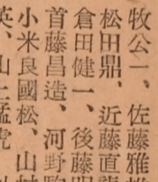 牧公一、佐藤雅
松田鼎、近藤直
倉田健一、後藤明
首藤昌造、河野
小米良國松、山
英、山上猛虎